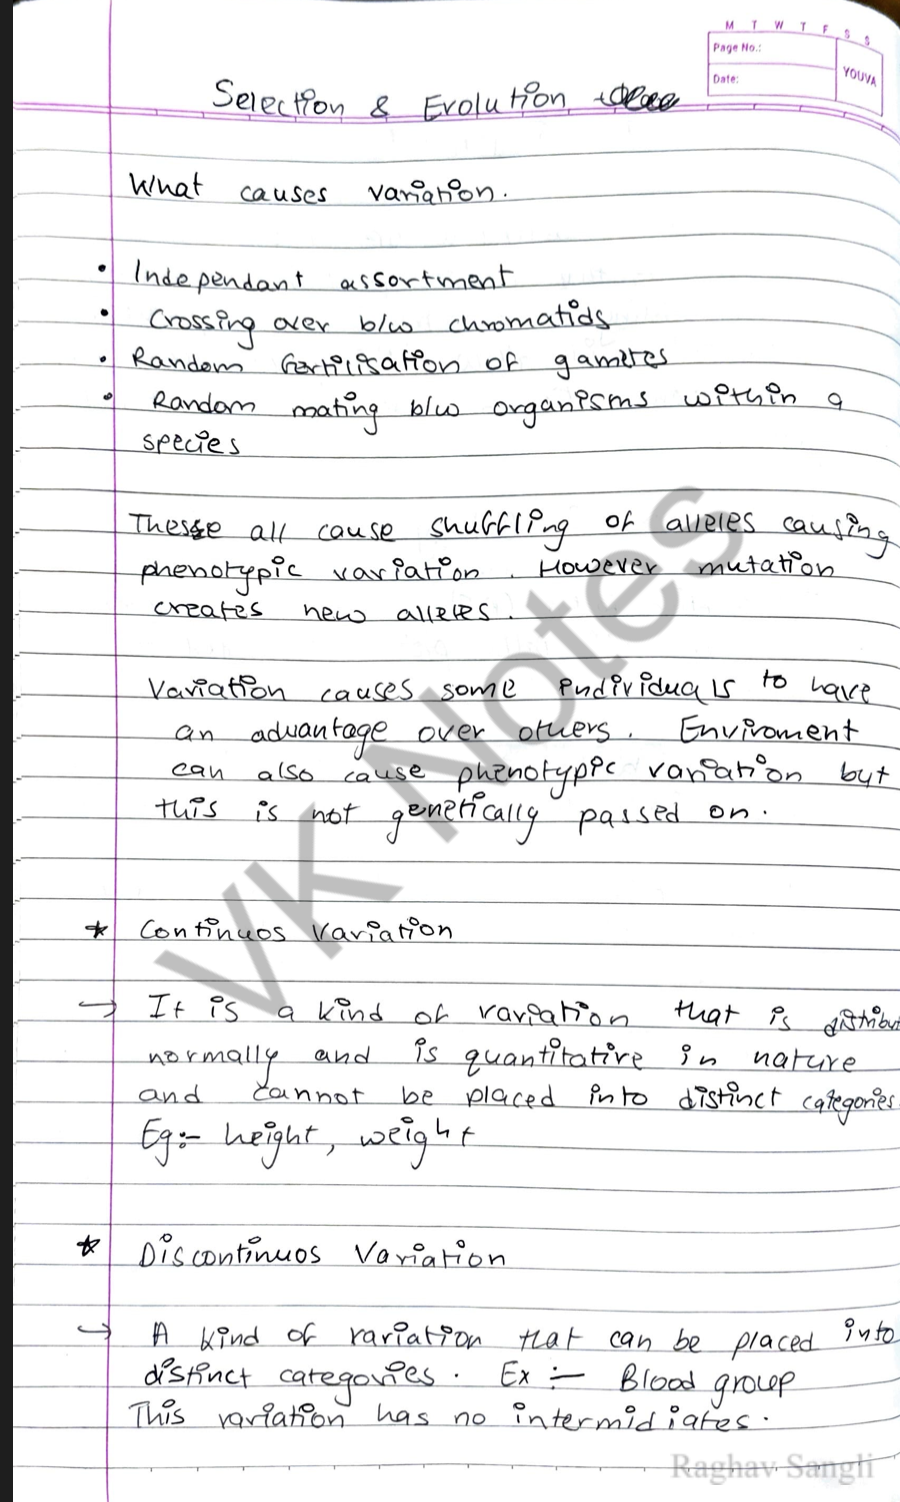 M T W T F S S
Page No.:
Date:
YOUVA
Selection & Evolution
What causes variation.
• Independant assortment
• Crossing over b/w chromatids
• Random fertilisation of gametes
• Random mating b/w organisms within a
species
These all cause shuffling of alleles causing
phenotypic variation. However mutation
creates new alleles.
Variation causes some individuals to have
an advantage over others. Enviroment
can also cause phenotypic variation but
this is not genetically passed on.
* Continuos Variation
→ It is a kind of variation that is distribu
normally and is quantitative in nature
and cannot be placed into distinct categories.
Eg:- height, weight
* Discontinuos Variation
→ A kind of variation that can be placed into
distinct categories. Ex :- Blood group
This variation has no intermidiates.
VK Notes
Raghav Sangli